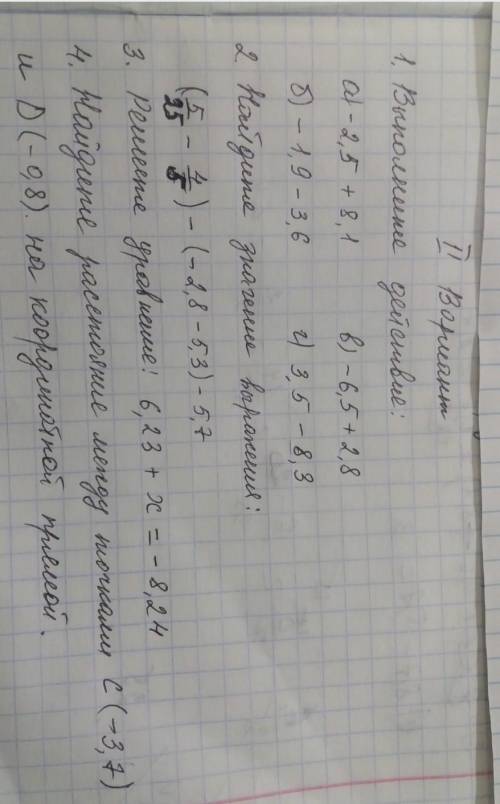 II Вариант
1. Выполните действие:
а) -2,5 + 8,1 в) -6,5 + 2,8
б) -1,9 - 3,6 г) 3,5 - 8,3
2 Найдите значение выражения:
(5/25 - 4/5) - (-2,8 - 5,3) - 5,7
3. Решите уравнение: 6,23 + x = -8,24
4. Найдите расстояние между точками C (-3,7)
и D (-0,8). на координатной прямой.